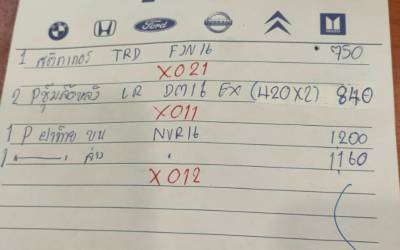 Ford NISSAN
1 สติกเกอร์ TRD FJN16 750
X021
2 Pซุ้มล้อหลัง LR DM16 EX (420X2) 840
X011
1 P ฝาท้าย บน NVR16 1200
1 ล่าง " 1160
X012